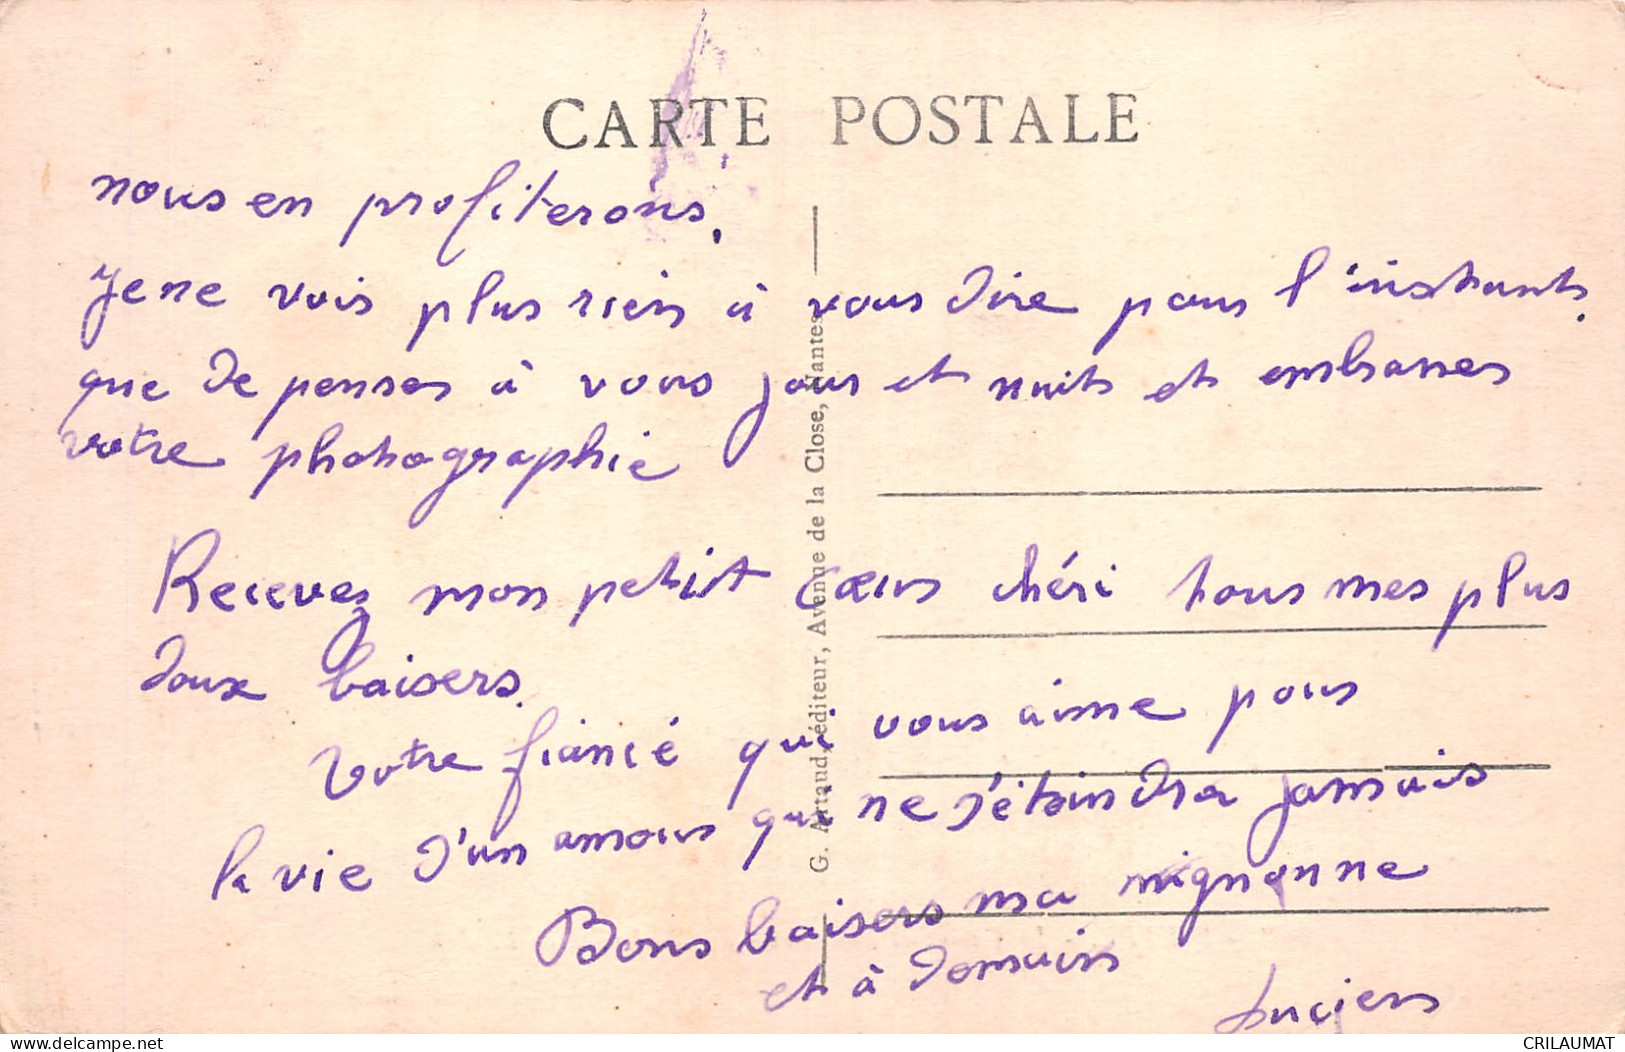 CARTE POSTALE
nous en profiterons.
Je ne vois plus rien à vous dire pour l'instant.
que de penser à vous jour et nuit et embrasser
votre photographie
Recevez mon petit cœur chéri tous mes plus
doux baisers.
Votre fiancé qui vous aime pour
la vie d'un amour qui ne s'éteindra jamais
Bons baisers ma mignonne
et à demain
Lucien
G. Artaud, éditeur, Avenue de la Close, Nantes
delcampe.net
CRILAUMAT